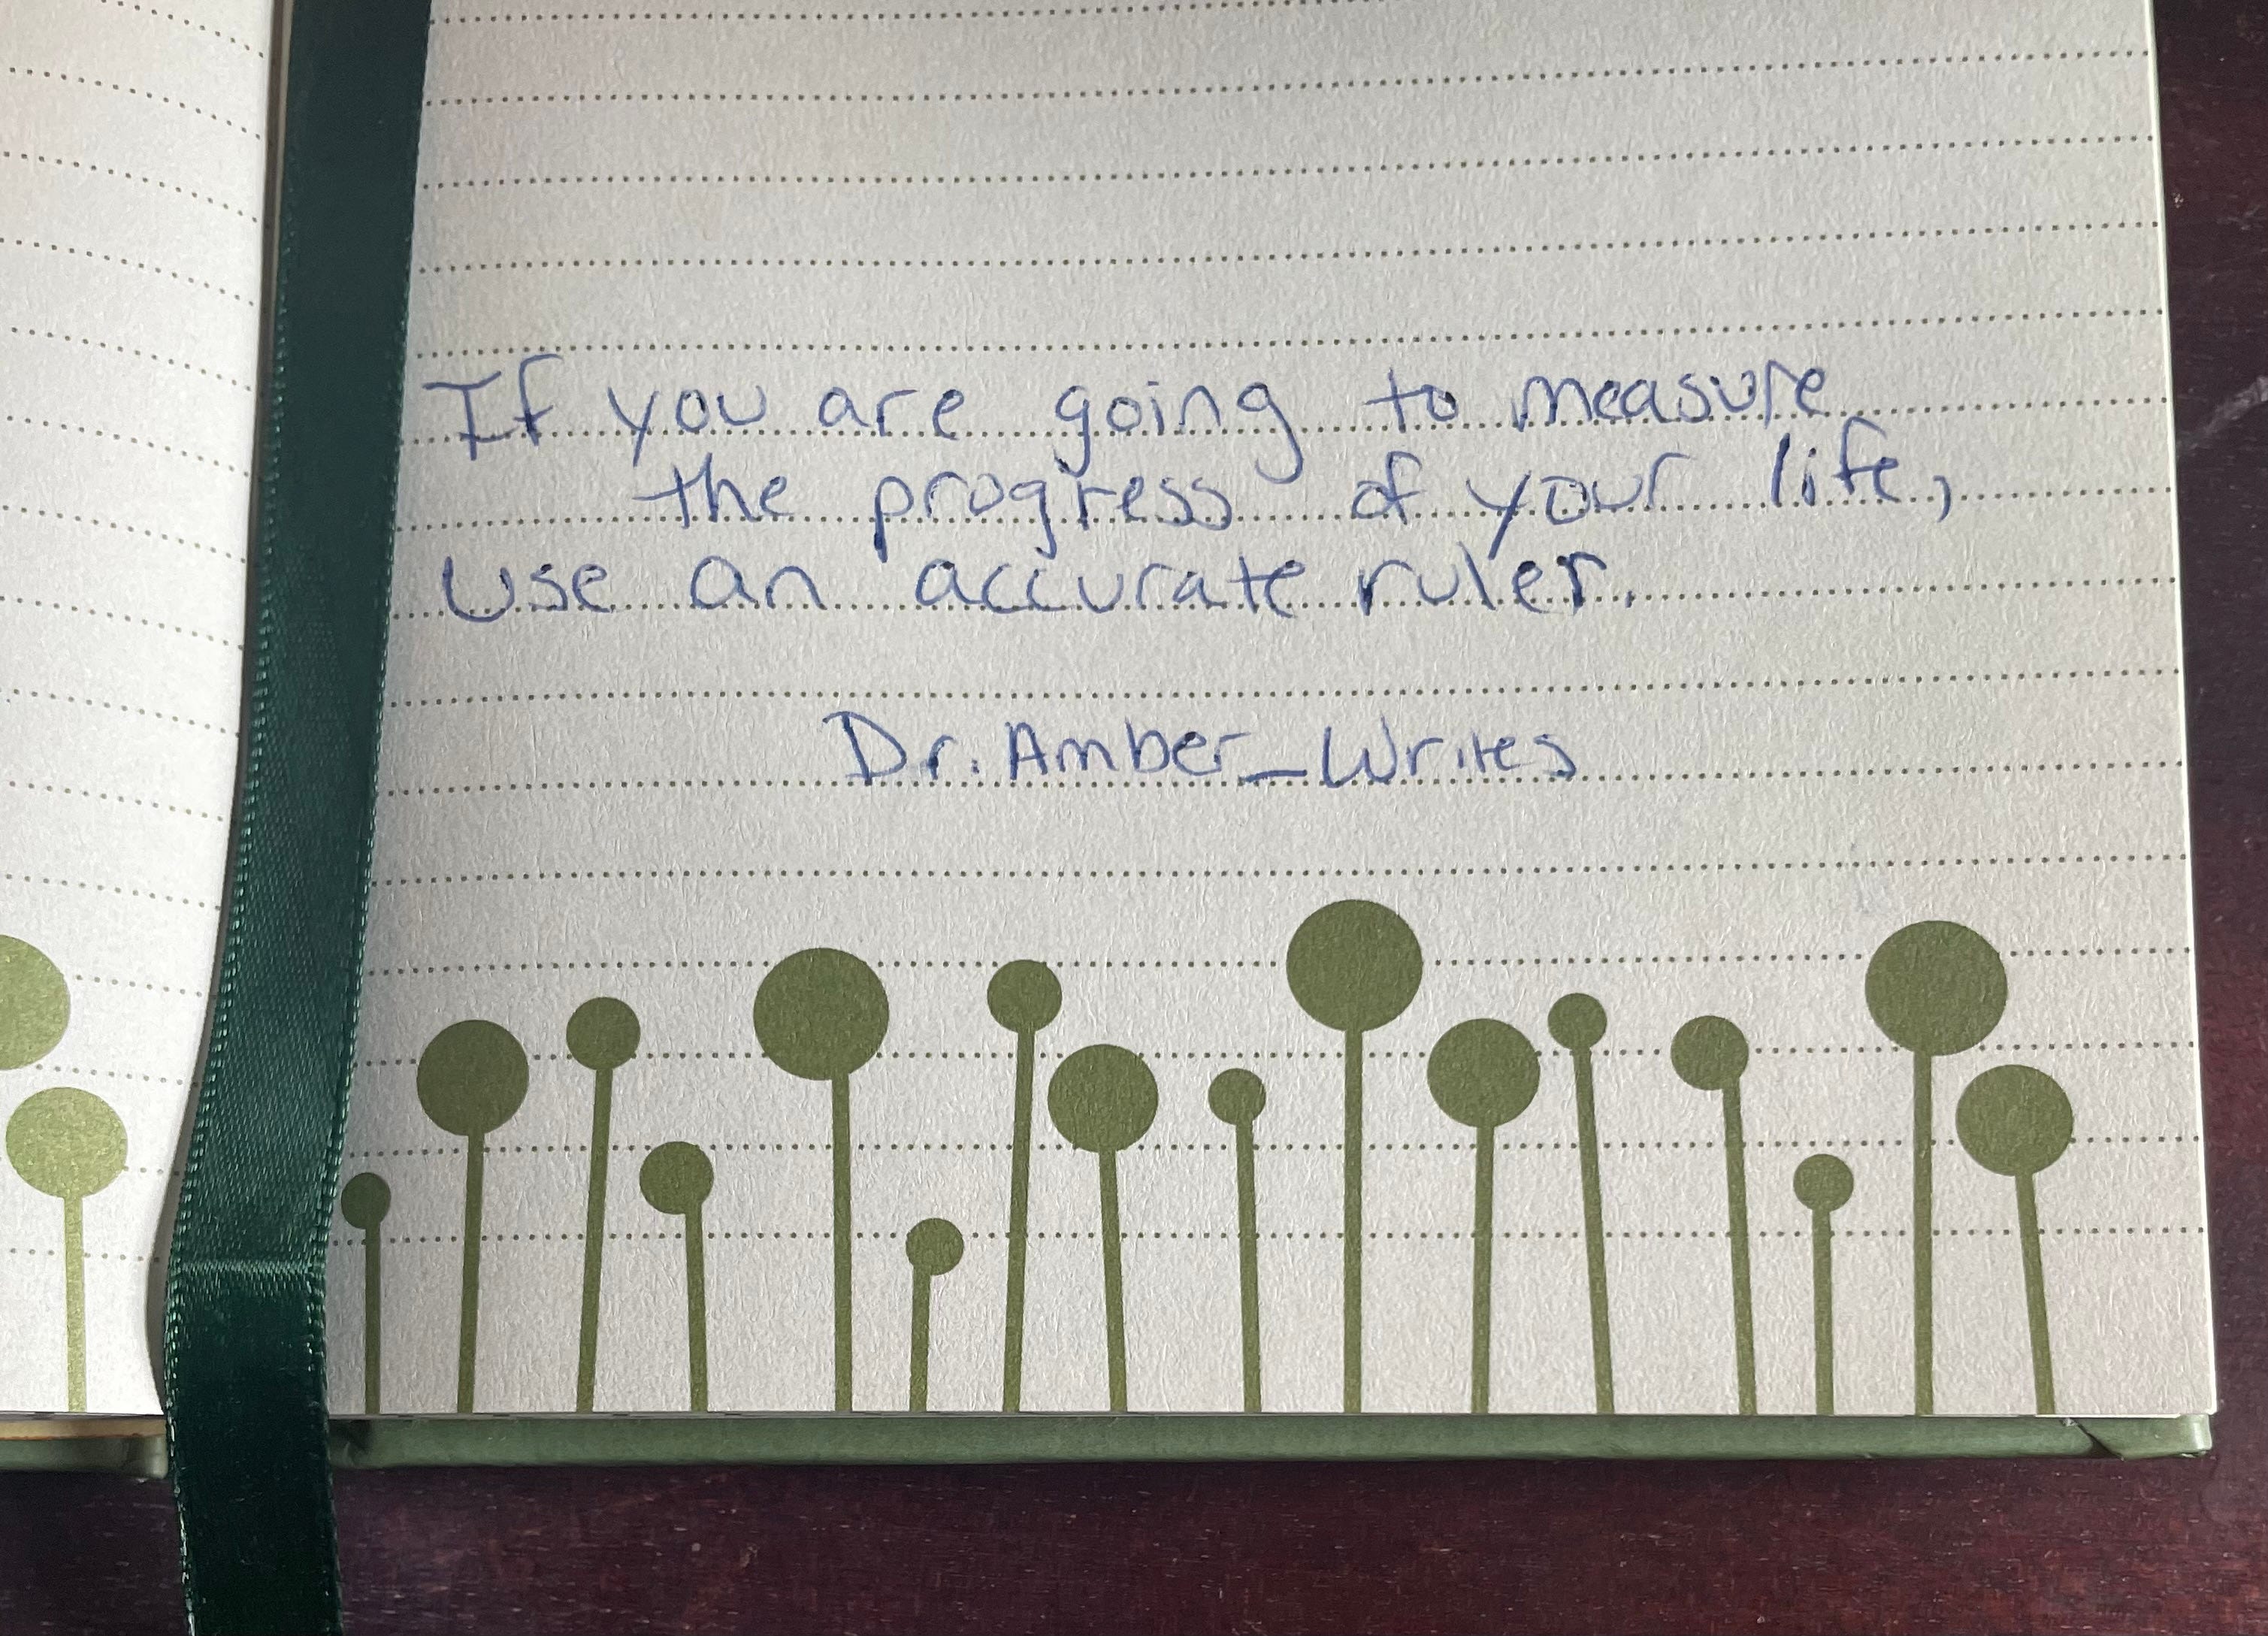 If you are going to measure
the progress of your life,
use an accurate ruler.
Dr. Amber_Writes